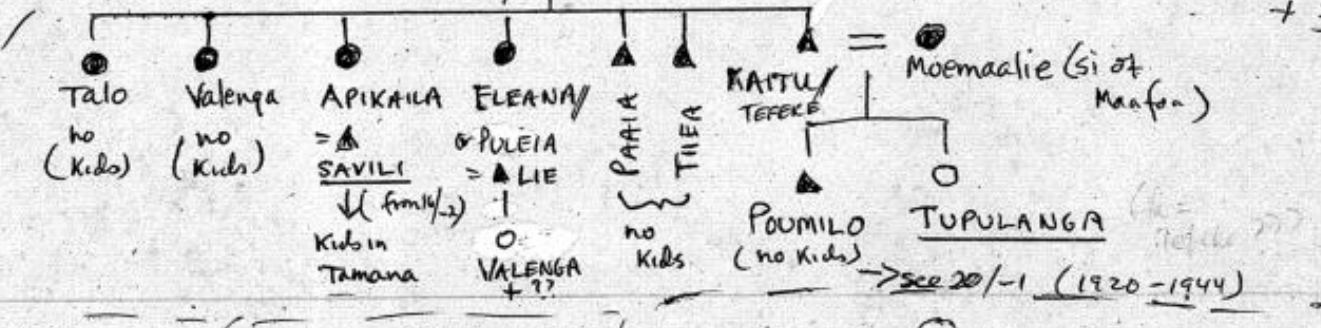 Talo
no
(Kids)
Valenga
(no
Kids)
APIKAILA
=
SAVILI
↓( from 16/-2)
Kids in
Tamana
ELEANA/
or PULEIA
= LIE
VALENGA
+ ??
PAAIA
TIIEA
no
Kids
KAITU/
TEFEKE
=
Moemaalie (si of
Maafoa)
POUMILO
(no Kids)
TUPULANGA
->see 20/-1 (1920-1944)